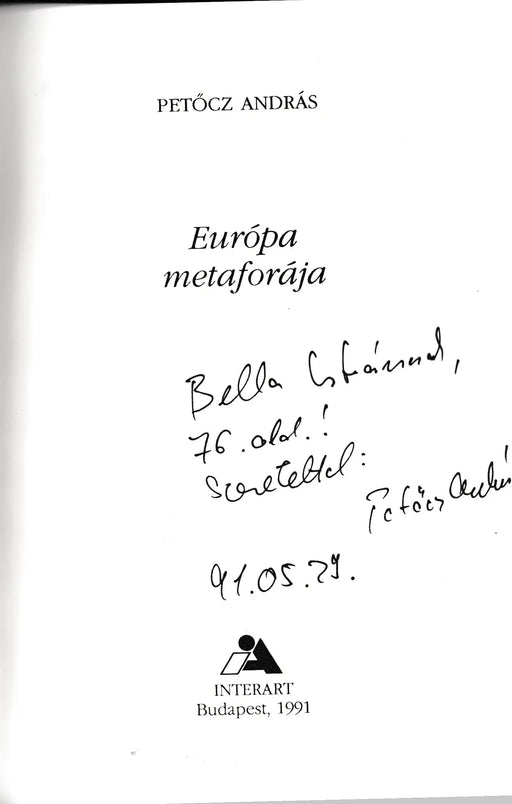 PETŐCZ ANDRÁS
Európa
metaforája
Bella Istvánnak,
76. old.!
Szeretettel:
Petőcz András
91.05.29.
iA
INTERART
Budapest, 1991